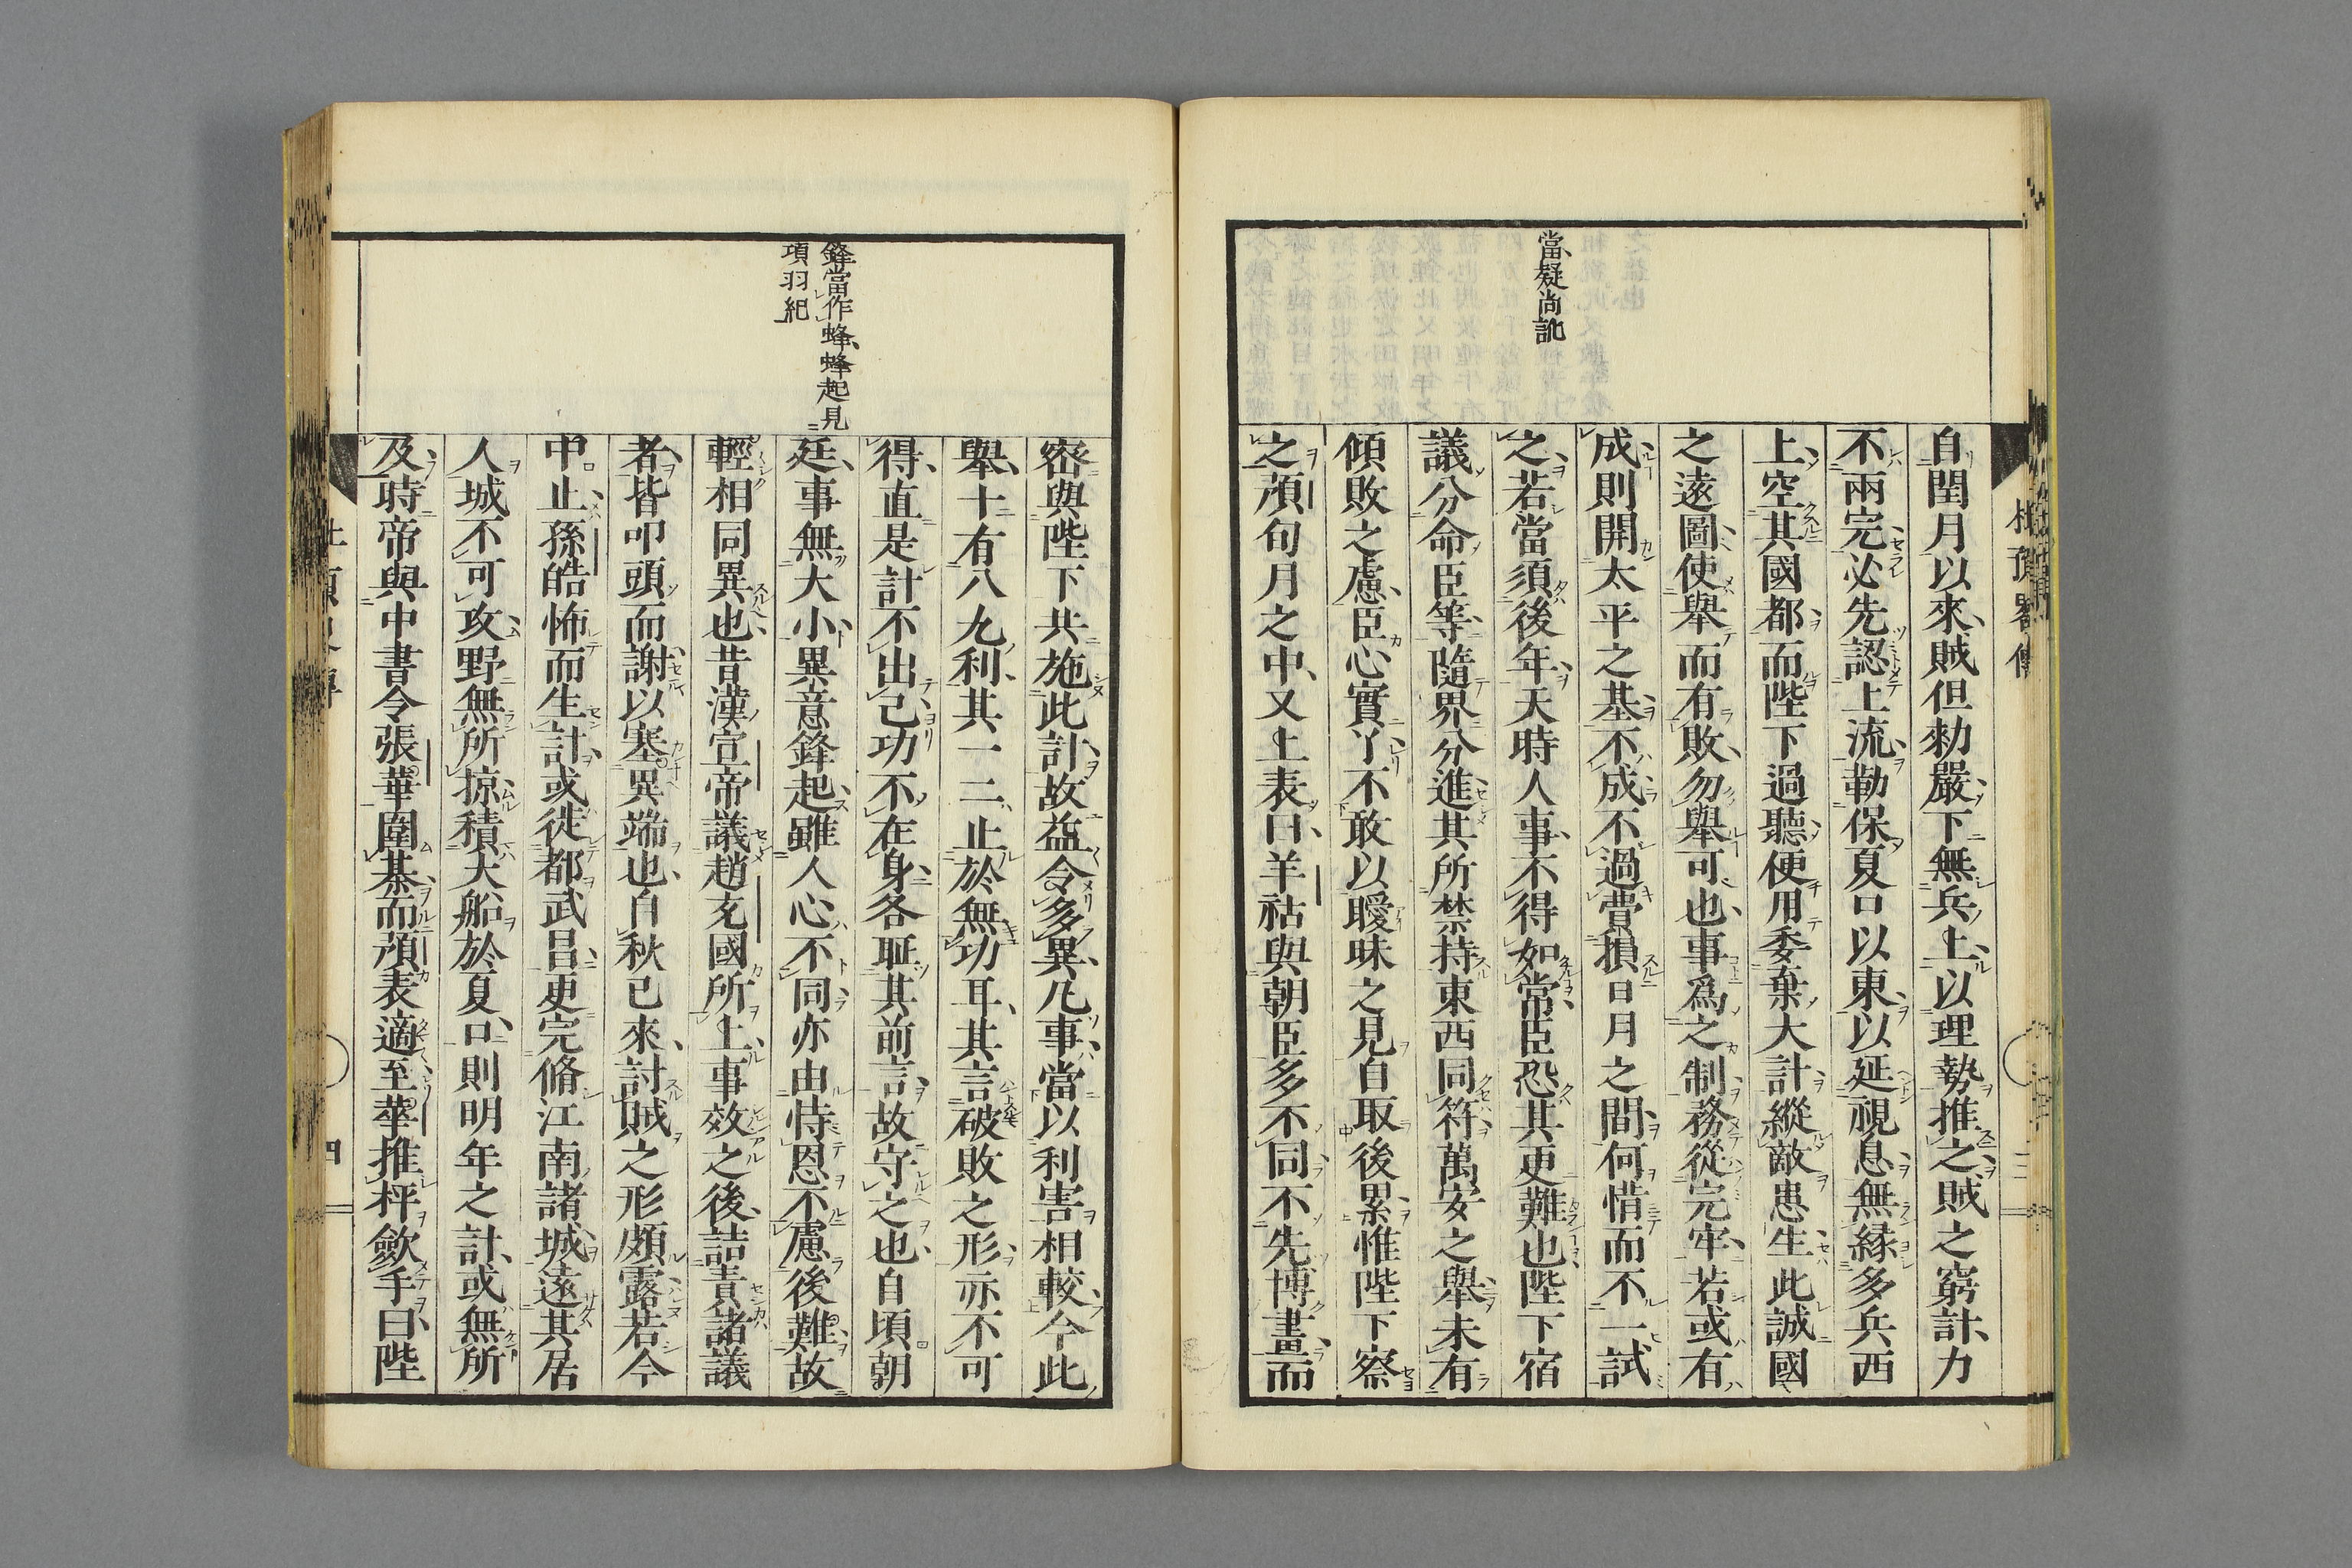 當疑尚訛
自閏月以來賊但勑嚴下無兵上以理勢推之賊之窮計力
不兩完必先認上流勒保夏口以東以延視息無緣多兵西
上空其國都而陛下過聽便用委棄大計縱敵患生此誠國
之遠圖使舉而有敗勿舉可也事爲之制務從完牢若或有
成則開太平之基不成不過費損日月之間何惜而不一試
之若當須後年天時人事不得如常臣恐其更難也陛下宿
議分命臣等隨界分進其所禁持東西同符萬安之舉未有
傾敗之慮臣心實了不敢以曖昧之見自取後累惟陛下察
之預旬月之中又上表曰羊祜與朝臣多不同不先博畫而
鋒當作蜂蜂起見
項羽紀
密與陛下共施此計故益令多異凡事當以利害相較今此
舉十有八九利其一二止於無功耳其言破敗之形亦不可
得直是計不出己功不在身各耻其前言故守之也自頃朝
廷事無大小異意鋒起雖人心不同亦由恃恩不慮後難故
輕相同異也昔漢宣帝議趙充國所上事效之後詰責諸議
者皆叩頭而謝以塞異端也自秋已來討賊之形頗露若今
中止孫皓怖而生計或徙都武昌更完脩江南諸城遠其居
人城不可攻野無所掠積大船於夏口則明年之計或無所
及時帝與中書令張華圍棊而預表適至華推枰斂手曰陛
四